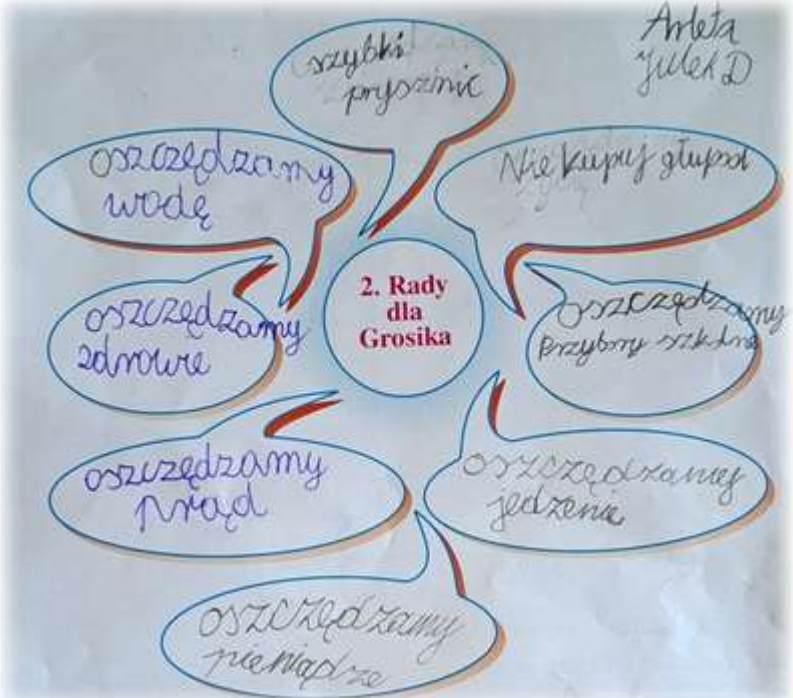 Arleta
Julek D
szybki
prysznic
oszczędzamy
wodę
Nie kupuj głupot
2. Rady
dla
Grosika
oszczędzamy
zdrowie
oszczędzamy
przybory szkolne
oszczędzamy
prąd
oszczędzamy
jedzenie
oszczędzamy
pieniądze